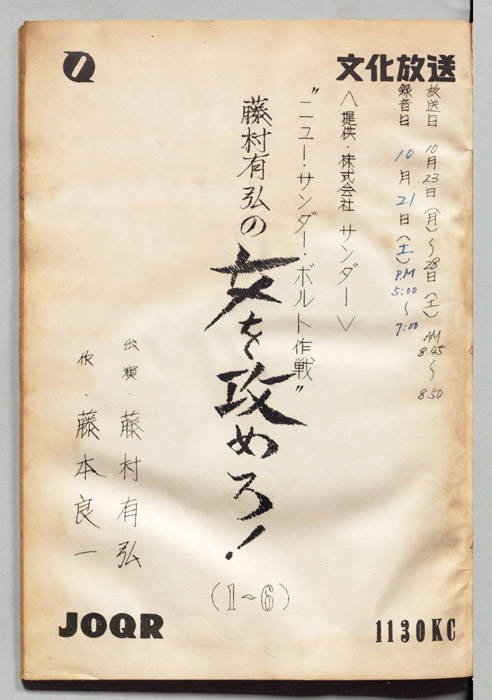 文化放送
放送日 10月23日(月)〜28日(土) AM 8:45〜8:50
録音日 10月21日(土) P.M 5:00〜7:00
〈提供・株式会社 サンダー〉
"ニュー・サンダー・ボルト作戦"
藤村有弘の女を攻めろ!
(1~6)
出演・藤村有弘
作・藤本良一
JOQR
1130KC